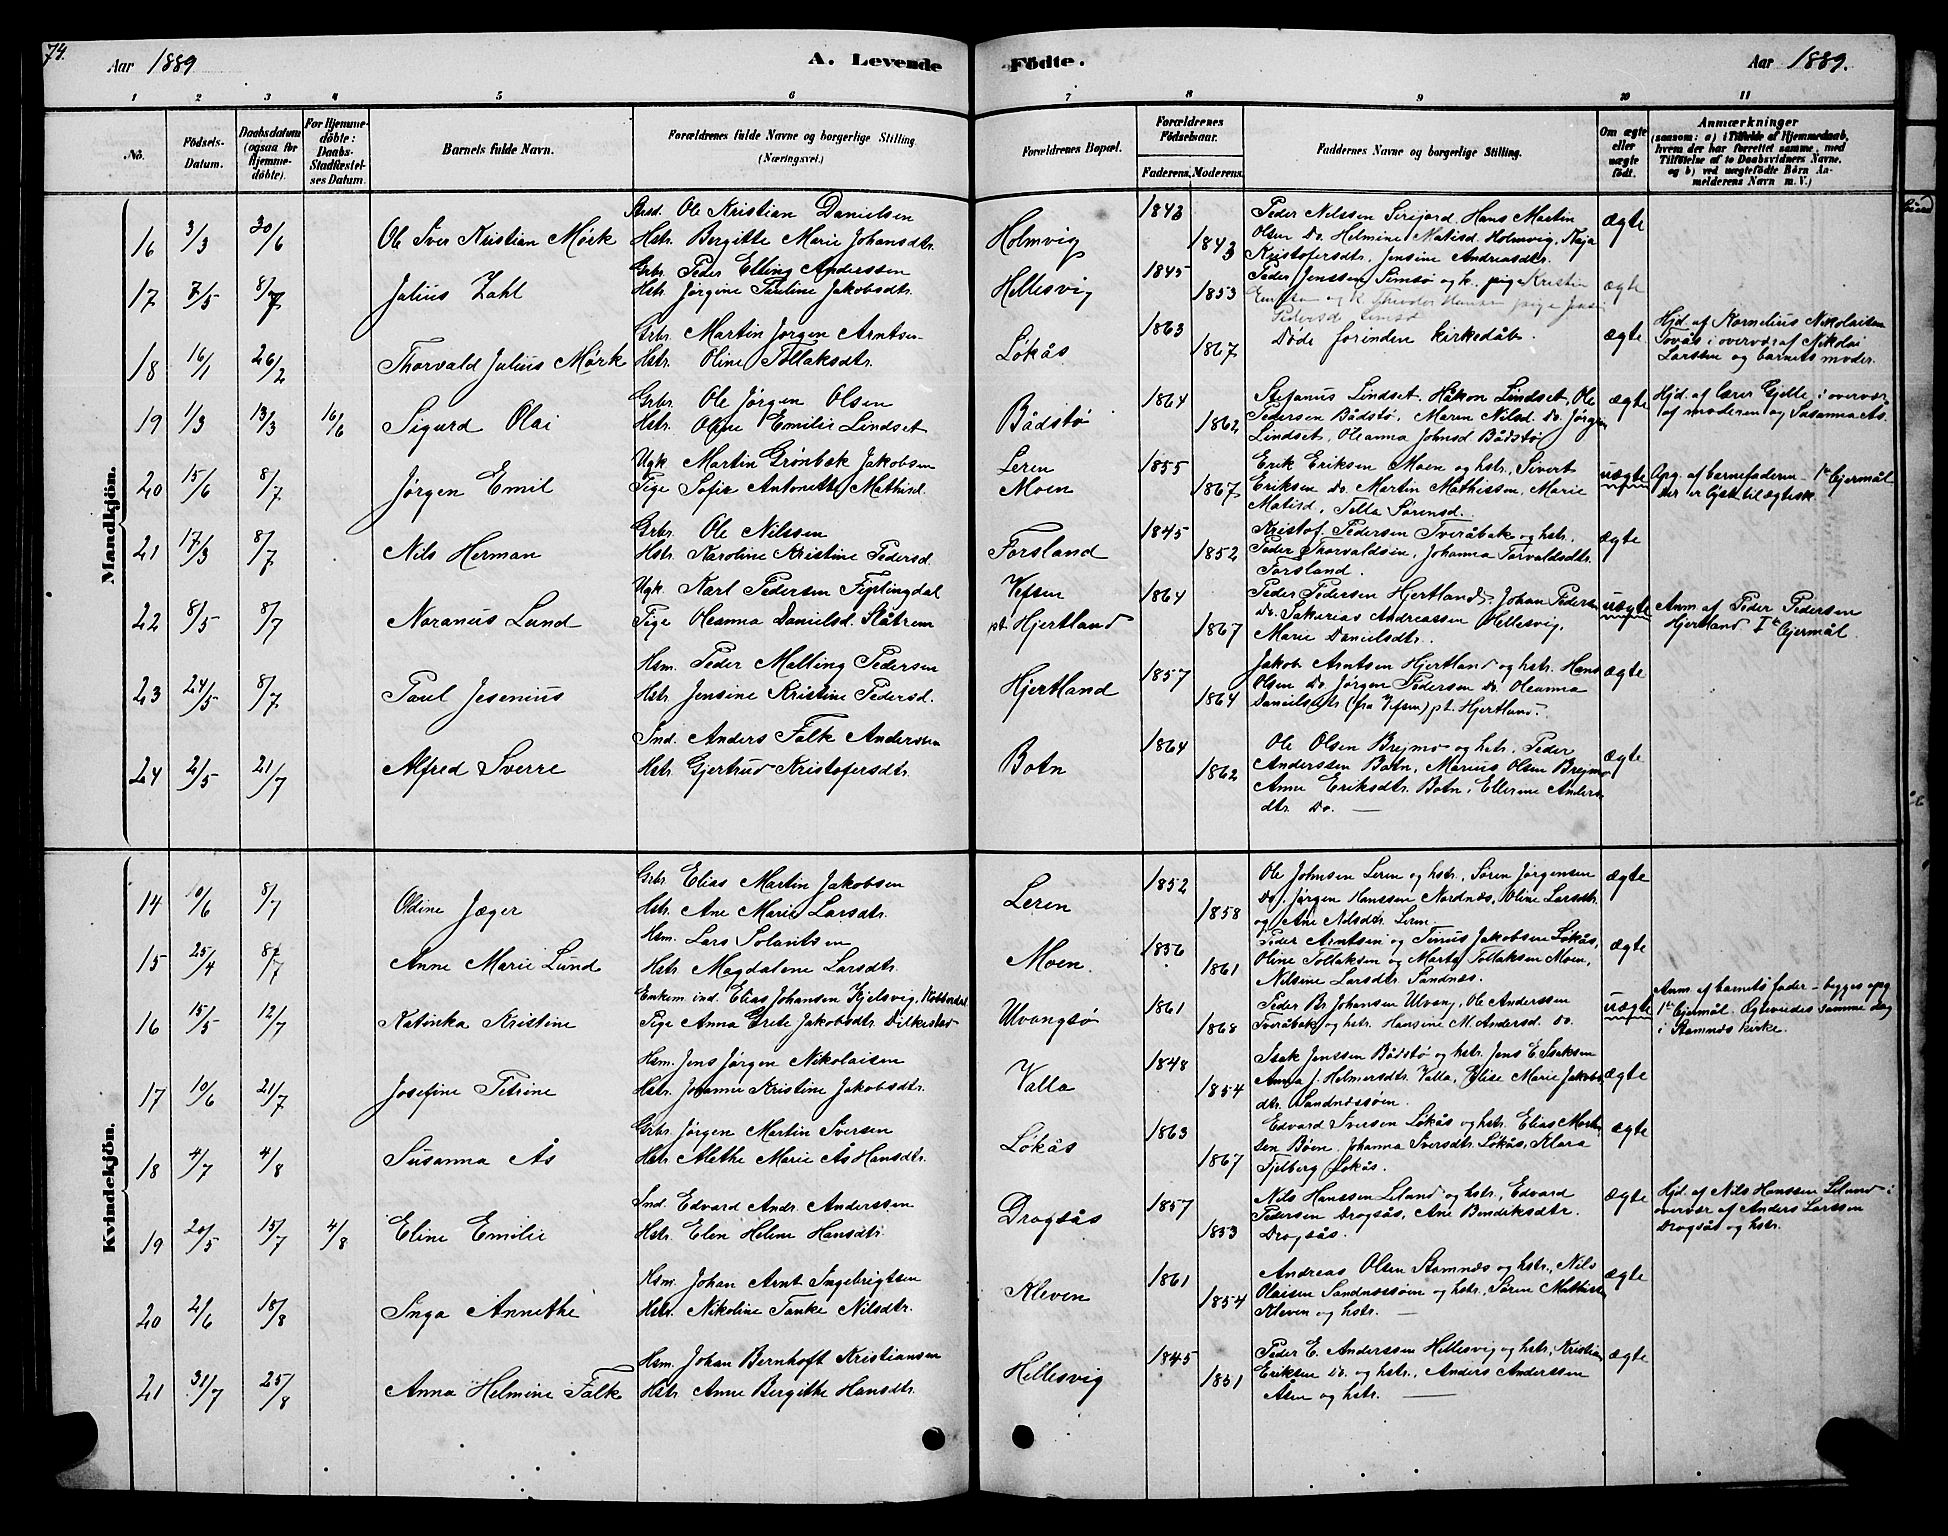 74.
Aar 1889
A. Levende
Födte.
Aar 1889.
1 2 3 4 5 6 7 8 9 10 11
No.
Födsels-
Datum.
Daabsdatum
(ogsaa for
Hjemme-
döbte).
For Hjemme-
döbte:
Daabs-
Stadfæstel-
ses Datum.
Barnets fulde Navn.
Forældrenes fulde Navne og borgerlige Stilling
(Næringsvei.)
Forældrenes Bopæl.
Forældrenes
Födselsaar.
Faderens. Moderens.
Faddernes Navne og borgerlige Stilling.
Om ægte
eller
uægte
födt.
Anmærkninger
(saasom: a) i Tilfælde af Hjemmedaab,
hvem der har forrettet samme, med
Tilföielse af to Daabsvidners Navne,
og b) ved uægtefödte Börn An-
melderens Navn m. V.)
Mandkjön.
16 3/3 30/6 Ole Sver Kristian Mørk
Ole Kristian Danielsen
Hstr. Bergitte Marie Johansdtr.
Holmvig
1843
1843
Peder Nilssen Serijord, Hans Martin
Olsen Do. Helmine Matisd. Holmvig, Kaja
Kristofersdtr, Jensine Andreasdtr.
ægte
17 7/5 8/7 Julius Zahl
Grbr. Peder Elling Anderssen
Hstr. Jørgine Pauline Jakobsdtr.
Hellesvig
1845
1853
Peder Jenssen Simsø og k. pige Kristin
ægte
18 16/1 26/2 Thorvald Julius Mørk
Grbr. Martin Jørgen Arntsen
Hstr. Oline Tollaksdtr.
Løkås
1863
1867
Døde forinden kirkedåb.
ægte
Hjd. af Kornelius Nikolaisen
Tovås i overvær af Nikolai
Larssen og barnets moder.
19 1/3 13/3 16/6 Sigurd Olai
Grbr. Ole Jørgen Olsen
Hstr. Oline Emilie Lindset
Bådstø
1864
1862
Stefanus Lindset, Håkon Lindset, Ole
Pedersen Bådstø, Maren Nilsd. Do. Jørgen
Lindset, Oleanna Johnsd. Bådstø
ægte
Hjd. af lærer Gjelle i overvær
af moderen og Susanna Ås.
20 15/6 8/7 Jørgen Emil
Ugk. Martin Grønbek Jakobsen
Pige Sofie Antonette Mathisd.
Leren
Moen
1855
1867
Erik Eriksen Moen og hstr, Sivert
Eriksen Do. Martin Mathissen, Marie
Matisd, Tella Sørensd.
uægte
Opg. af barnefaderen – 1te lejermål
Der er lyst til ægtesk.
21 17/3 8/7 Nils Herman
Grbr. Ole Nilssen
Hstr. Karoline Kristine Pedersd.
Forsland
1845
1852
Kristof. Pedersen Tveråbak og hstr.
Peder Thorvaldsen, Johanna Torvaldsdtr.
Forsland.
ægte
22 8/5 8/7 Naranus Lund
Ugk. Karl Pedersen Fiplingdal
Pige Oleanna Danielsd. Slåtrem
Vefsen
pt. Hjertland
1864
1867
Peder Pedersen Hjertland, Johan Pedersen
Do. Sakarias Andreassen Hellesvig,
Marie Danielsdtr.
uægte
Anm. af Peder Pedersen
Hjertland 1te lejermål.
23 24/5 8/7 Paul Jesenius
Hsm. Peder Malling Pedersen
Hstr. Jensine Kristine Pedersd.
Hjertland
1857
1864
Jakob Arntsen Hjertland og hstr. Hans
Olsen Do. Jørgen Pedersen Do. Oleanna
Danielsdtr. (fra Vefsen) pt. Hjertland.
ægte
24 2/5 21/7 Alfred Sverre
Ind. Anders Falk Anderssen
Hstr. Gjertrud Kristofersdtr.
Botn
1864
1862
Ole Olsen Brejmo og hstr, Peder
Anderssen Botn, Marius Olsen Brejmo
Anne Eriksdtr. Botn, Ellerine Anders
dtr. Do. —
ægte
Kvindekjön.
14 10/6 8/7 Oldine Jæger
Grbr. Elias Martin Jakobsen
Hstr. Ane Marie Larsdtr.
Leren
1852
1858
Ole Johnsen Leren og hstr, Søren Jørgensen
Do, Jørgen Hanssen Nordnæs, Oline Larsdtr.
og Ane Nilsdtr. Leren.
ægte
15 25/4 8/7 Anne Marie Lund
Hsm. Lars Tolavitsen
Hstr. Magdalene Larsdtr.
Moen.
1856
1861
Peder Arntsen og Tinus Jakobsen Løkås,
Oline Tollaksen og Marta Tollaksen Moen,
Nilsine Larsdtr Sandnæs.
ægte
16 15/5 12/7 Katinka Kristine
Enkem. ind. Elias Johansen Kjelsvig, Kobberdal
Pige Anna Grete Jakobsdtr. Dilkestad
Ulvangsø
1861
1868
Peder Br. Johansen Ulvang, Ole Anderssen
Tveråbak og hstr. Hansine M. Andersd. Do.
uægte
Anm. af barnets fader – begges opg.
1te lejermål. Ægtevidet samme dag
i Stamnæs kirke.
17 10/6 21/7 Josefine Petrine
Hsm. Jens Jørgen Nikolaisen
Hstr. Johanna Kristine Jakobsdtr.
Valla
1848
1854
Isak Jenssen Bådstø og hstr. Jens E. Isaksen
Anna J. Helmersdtr. Valla, Elise Marie Jakobs
dtr. Sandnæssøen.
ægte
18 4/7 4/8 Susanna Ås
Grbr. Jørgen Martin Sversen
Hstr. Alethe Marie Ås Hansdtr.
Løkås
1863
1867
Edvard Sversen Løkås og hstr. Elias Mort
sen Bøen, Johanna Sversdtr. Løkås, Klara
Fjelberg Løkås.
ægte
19 20/5 15/7 4/8 Eline Emilie
Ind. Edvard Andr. Anderssen
Hstr. Elen Helene Hansdtr.
Drogsås
1857
1853
Nils Hanssen Leland og hstr., Edvard
Pedersen Drogsås, Ane Bendiksdtr.
Drogsås.
ægte
Hjd. af Nils Hanssen Leland i
overvær af Anders Larssen
Drogsås og hstr.
20 2/6 18/8 Inga Annethe
Hsm. Johan Arnt Ingebrigtsen
Hstr. Nikoline Tanke Nilsdtr.
Kleven
1861
1854
Andreas Olsen Stamnæs og hstr., Nils
Olaisen Sandnæssøen og hstr., Søren Mathisen
Kleven og hstr. —
ægte
21 31/7 25/8 Anna Helmine Falk
Hsm. Johan Bernhoft Kristiansen
Hstr. Anne Bergithe Hansdtr.
Hellesvig
1845
1851
Peder E. Anderssen Hellesvig og hstr, Kristian
Eriksen Do. og hstr., Anders Anderssen
Åsen og hstr. —
ægte